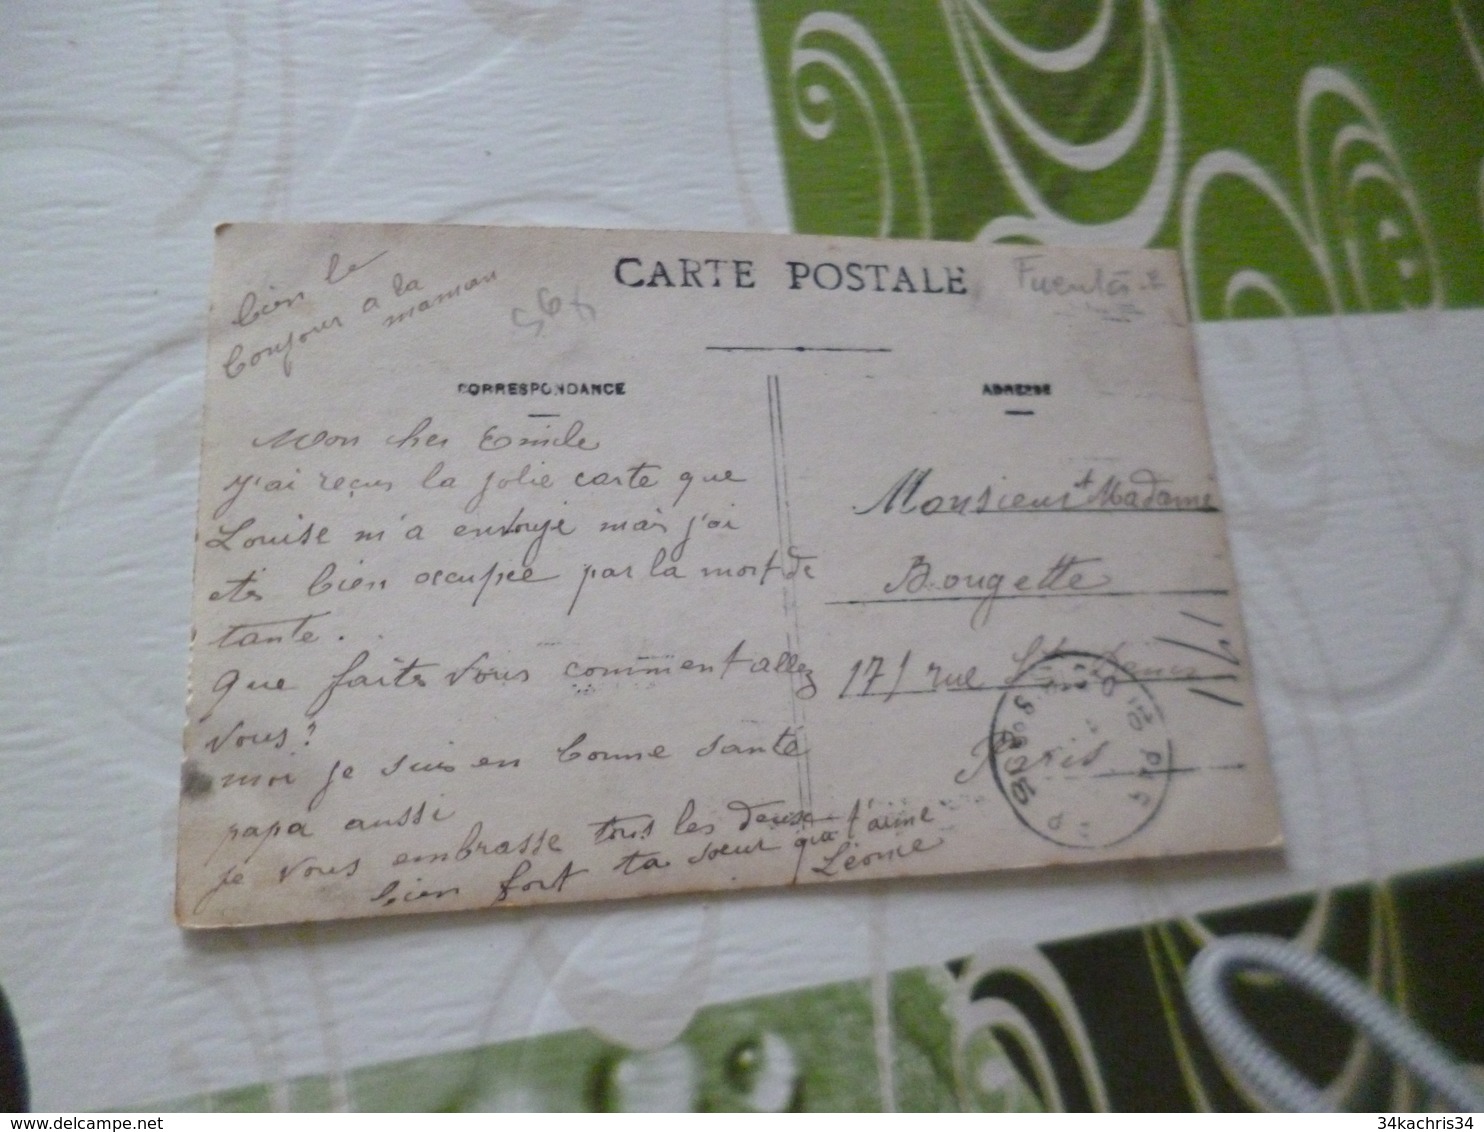 bien le
bonjour a la
maman
CARTE POSTALE
CORRESPONDANCE
ADRESSE
Mon cher Emile
j'ai reçus la jolie carte que
Louise m'a envoyé mais j'ai
etés bien occupée par la mort de
tante.
Que faites vous comment allez
vous?
moi je suis en bonne santé
papa aussi
je vous embrasse tous les deux
bien fort ta soeur qui t'aime
Léonie
Monsieur et Madame
Bougette
171 rue St Denis
Paris
171
34kachris34